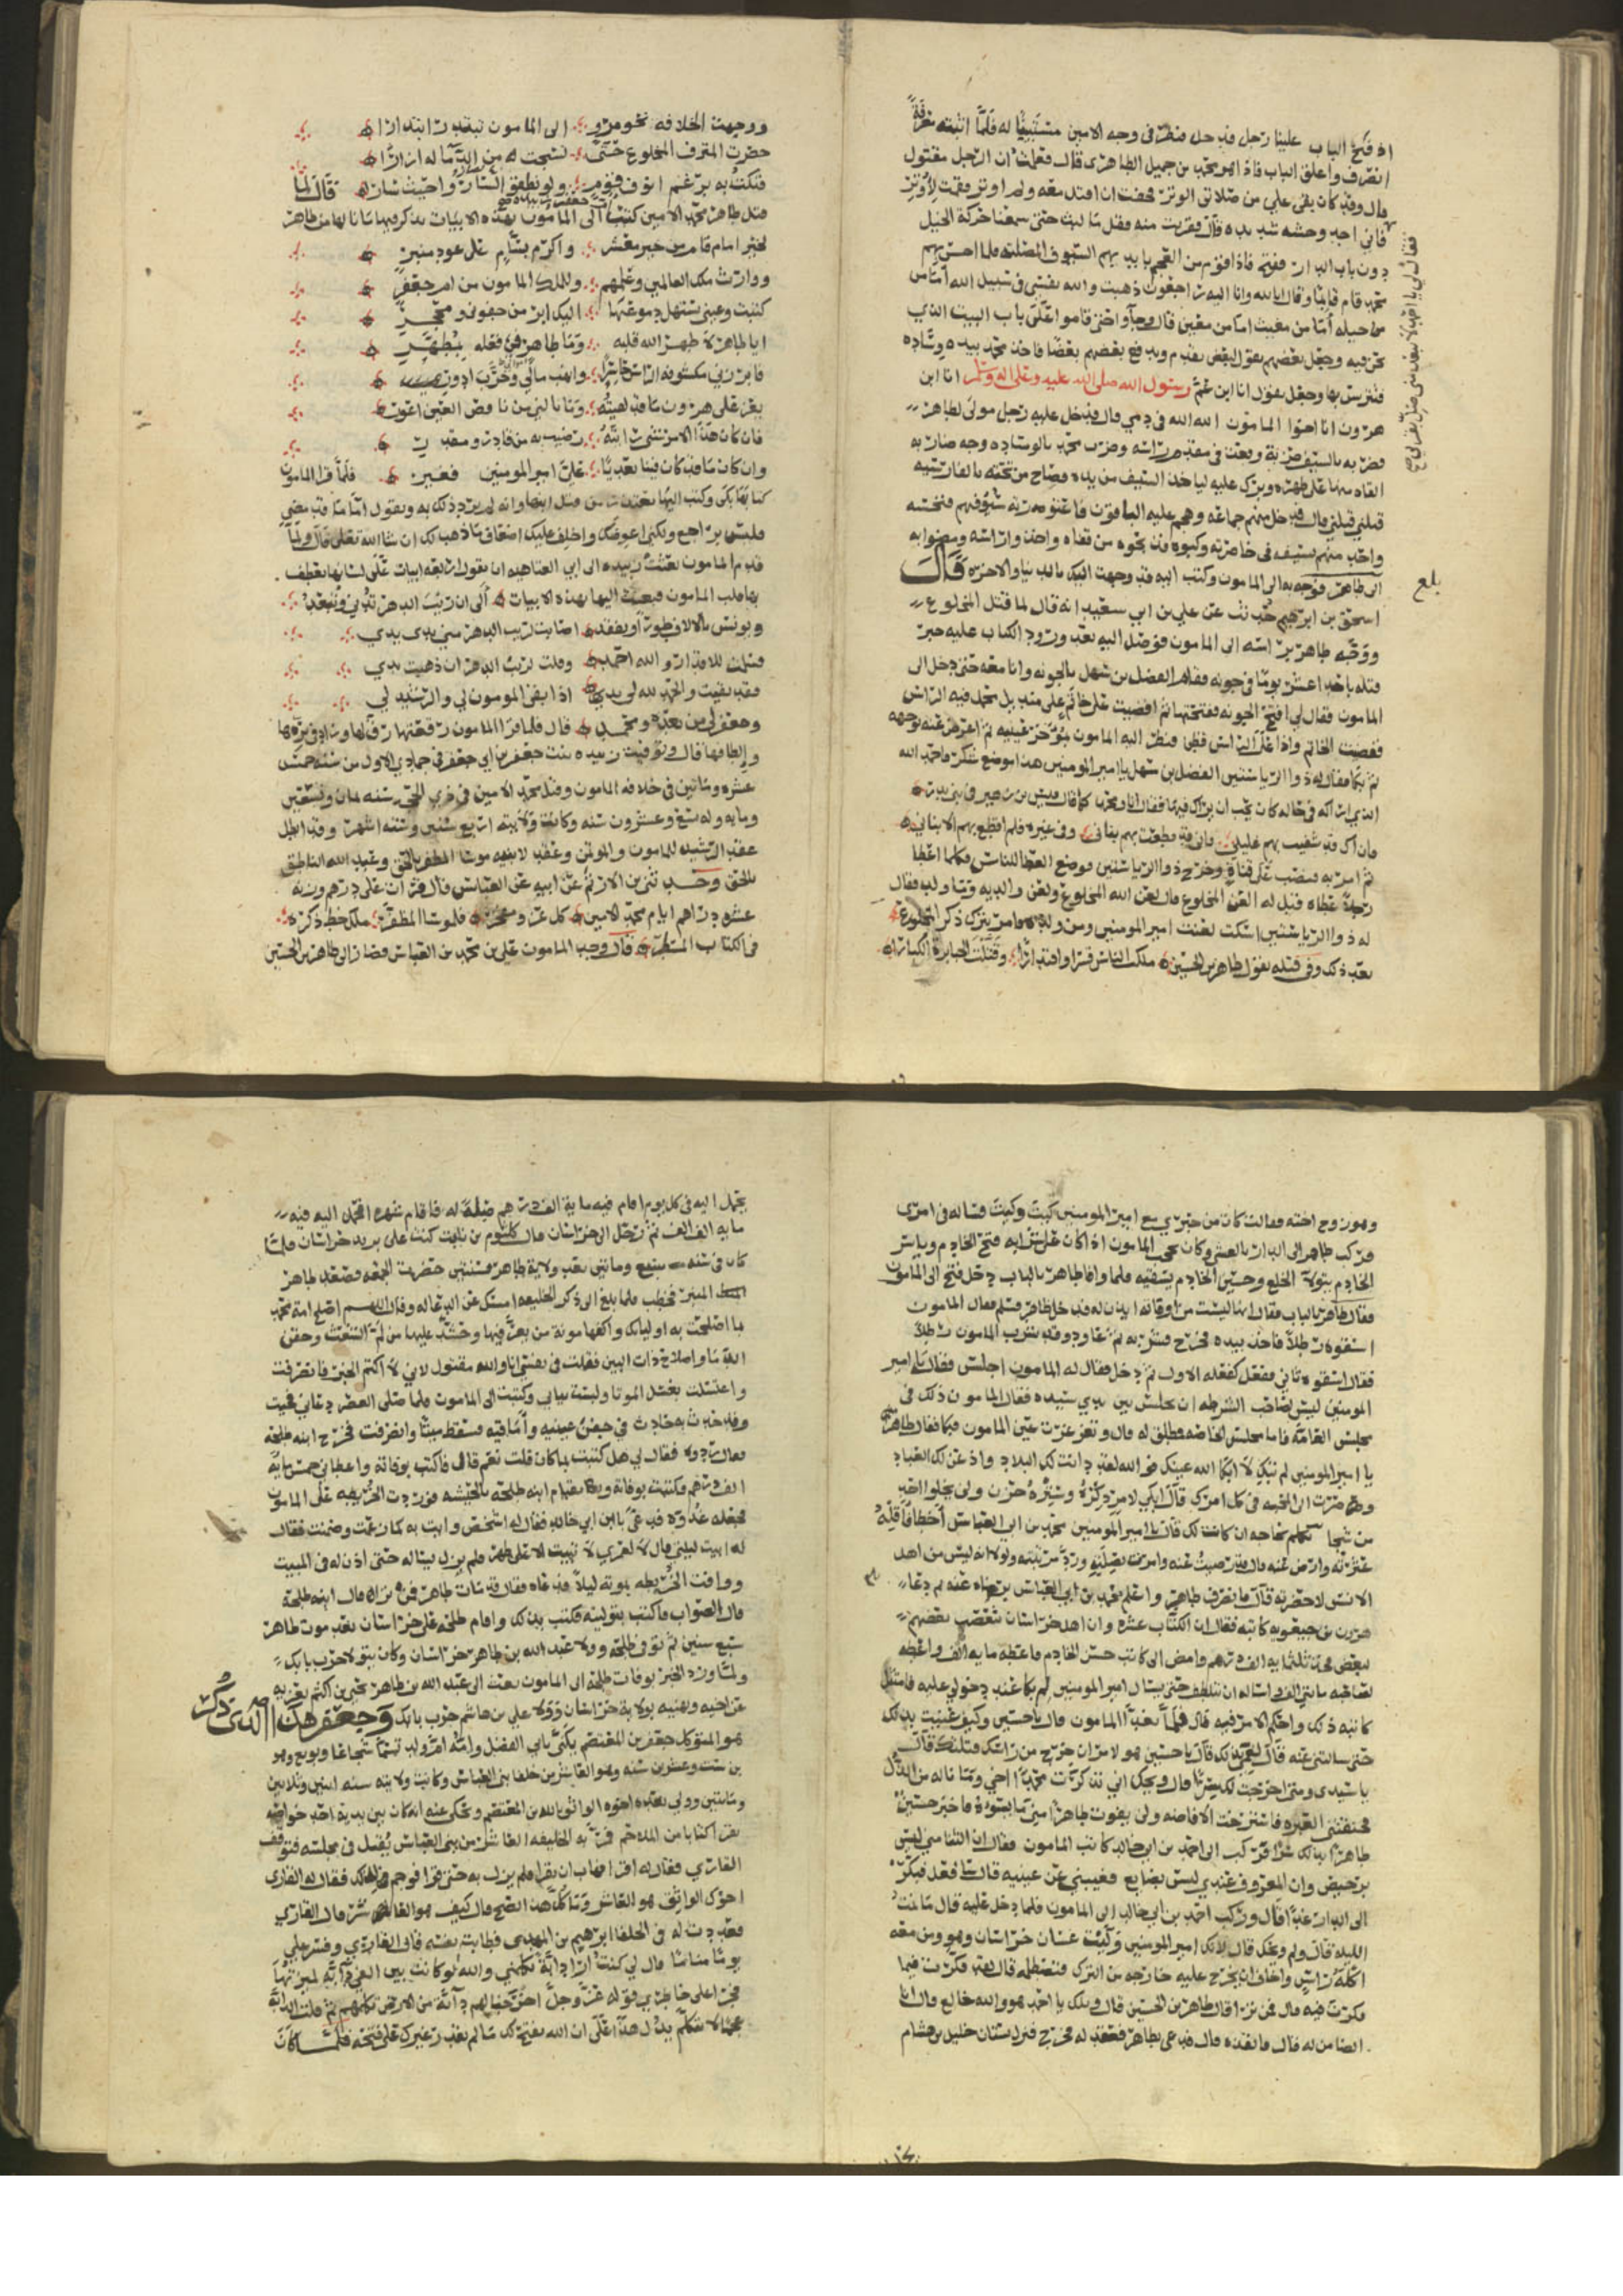 اذ فتح الباب علينا رجل قد دخل فنظر فى وجه الامين مستثبتا له فلما اثبته معرفة
انصرف واغلق الباب فاذا هو محمد بن حميد الطاهرى قال فعلمت ان الرجل مقتول
قال وقد كان بقى علي من صلاتى الوتر فخفت ان اقتل معه ولم اوتر فقمت لاوتر
فقال لي يا احمد لا تبعد منى صل بقربي
فاني اجد وحشه شديده قال فقربت منه فقل ما لبث حتى سمعنا حركة الخيل
دون باب الدار ففتح فاذا قوم من العجم بايديهم السيوف المصلته فلما احس بهم
محمد قام قايما وقال انا لله وانا اليه راجعون ذهبت والله نفسي فى سبيل الله اما من
من حيله أما من مغيث اما من معين قال وجآوا حتى قاموا على باب البيت الذي
نحن فيه وجعل بعضهم يقول لبعض تقدم ويدفع بعضهم بعضا فاخذ محمد بيده وساده
فتترس بها وجعل يقول انا ابن عم رسول الله صلى الله عليه وعلى اله وسلم انا ابن
هرون انا اخوا المامون الله الله فى دمي قال فدخل عليه رجل مولى لطاهر
فضربه بالسيف ضربة وقعت فى مقدم راسه وضرب محمد بالوساده وجه ضاربه
القاه منها على ظهره وبرك عليه لياخذ السيف من يده فصاح من تحته بالفارسيه
قتلني قتلني قال فدخل منهم جماعه وهجم عليه الباقون فاعتوره سيوفهم فنخسه
واحد منهم بسيف فى خاصرته وكبوه فذبحوه من قفاه واخذوا راسه ومضوا به
الى طاهر فوجه به الى المامون وكتب اليه قد وجهت اليك بالدنيا والاخره قال
بلغ
اسحق بن ابرهيم حدثت عن علي بن ابي سعيد انه قال لما قتل المخلوع
ووجه طاهر براسه الى المامون فوصل اليه بعد ورود الكتاب عليه خبر
قتله باحد اعشر يوما فى جونه فقام الفضل بن سهل بالجونه وانا معه حتى دخل الى
المامون فقال لي افتح الجونه ففتحتها ثم افضيت على خاتم على منديل مجلد فيه الراس
ففضت الخاتم واذا على الراس قطن فنظر اليه المامون بمؤخر عينيه ثم اعرض عنه بوجهه
ثم بكا فقال له ذوا الرياستين الفضل بن سهل يا امير المومنين هذا موضع شكر فاحمد الله
الذي اراكه فى حاله كان يحب ان يراك فيها فقال انا ومحمد كما قال قيس بن زهير فى بنى بدر
فان اك قد شفيت بهم غليلي وان قد قطعت بهم بناني وفى غيره فلم اقطع بهم الا بناني
ثم امر به فنصب على قناة وخرج ذوا الرياستين فوضع العطا للناس فكلما اعطا
رجلا عطاه قيل له العن المخلوع قال لعن الله المخلوع ولعن والديه وما ولد فقال
له ذوا الرياستين اسكت لعنت امير المومنين ومن ولده وامر بترك ذكر المخلوع
بعد ذلك وفى قتله يقول طاهر بن الحسين ملكت الناس قسرا واقتدارا وقتلت الجبابرة الكبارا
ووجهت الخلافه نحو مرو الى المامون تبتدر ابتدارا
حضرت المترف المخلوع حتى نسجت له من الدما له ازارا
فنكت به برغم انوف قوم ولم يطيقو انتصارا واحيث سارا قال لما
قتل طاهر محمد الامين كتبت ام جعفر زبيده الى المامون بهذه الابيات يذكر فيها ما نالها من طاهر
لخير امام قام من خير معشر واكرم بسام على عود منبر
ووارث ملك العالمين وعلمهم وللملك المامون من ام جعفر
كتبت وعيني تستهل دموعها اليك ابن من جفوني ومحجر
ايا طاهر لا طهر الله قلبه وما طاهر في فعله بمطهر
فابرزني مكشوفه الراس حاسرا وانهب مالي وخرب ادور
يعز على هرون ما قد لقيته وما نالني من ناقص العين اعور
فان كان هذا الامر شى رايته رضيت به من قادر ومقدر
وان كان ما قد كان فينا تعديا علي امير المومنين فغير فلما قرا المامون
كتابها بكى وكتب اليها يعتذر من قتل ابنها وانه لم يرد ذلك به ويقول اما ما قد مضى
فليس براجع ولكنى اعوضك واخلف عليك اضعاف ما ذهب لك ان شا الله تعالى قال ولما
قدم المامون بعثت زبيده الى ابي العتاهيه ان يقول اربعه ابيات على لسانها تعطف
بها قلب المامون فبعث اليها بهذه الابيات ألى ان ريب الدهر يدني ويبعد
ويونس بالالاف طورا ويفقد اصابت لريب الدهر مني يدى يدي
فسلمت للاقدار والله احمد وقلت لريب الدهر ان ذهبت يدي
فقد بقيت والحمد لله لي يد اذا بقى المومون لي والرشيد لي
وجعفر لي من بعده ومحمد قال فلما قرا المامون رقعتها رق لها وزاد فى برها
والطافها قال وتوفيت زبيده بنت جعفر بن ابي جعفر فى جمادي الاول من سنه خمس
عشره وماتين فى خلافه المامون وقتل محمد الامين فى ذي الحجه سنه ثمان وتسعين
ومايه وله سبع وعشرون سنه وكانت ولايته اربع سنين وسته اشهر وقد ابطل
عقد الرشيد للمامون والموتمن وعقد لابنيه موسا المظفر بالحق وعبد الله الناطق
بالحق وحدث نمر بن الازهر عن ابيه عن العباس قال قرات على درهم وزنه
عشره دراهم ايام محمد الامين كل عز ومفخر فلموسا المظفر ملك خط ذكره
فى الكتاب المسطر قال وجه المامون علي بن محمد بن العباس فصار الى طاهر بن الحسين
وهو زوج اخته فقالت كان من خبري مع امير المومنين كيت وكيت فساله فى امري
فركب طاهر الى الدار بالعشي وكان يحجب المامون اذا كان على شرابه فتح الخادم وياسر
الخادم يتولا الخلع وحسين الخادم يسقيه فلما وافا طاهر بالباب دخل فتح الى المامون
فقال طاهر بالباب فقال انها ليست من اوقاته ايذن له فدخل طاهر فسلم فقال المامون
اسقوه رطلا فاخذه بيده فخرج فشربه ثم عاد وقد شرب المامون رطلا
فقال اسقوه ثاني ففعل كفعله الاول ثم دخل فقال له المامون اجلس فقال يا امير
المومنين ليس لصاحب الشرطه ان يجلس بين يدي سيده فقال المامون ذلك فى
مجلس العامه فاما مجلس الخاصه فطلق له قال وتغرغرت عين المامون فبكا فقال طاهر
يا امير المومنين لم تبكي لا ابكا الله عينك فوالله لقد دانت لك البلاد واذعن لك العباد
وصرت الى المحبه فى كل امرك قال ابكي لامر ذكره وستره حزن ولن يخلوا احد
من شجا تكلم بحاجه ان كانت لك قال يا امير المومنين محمد بن ابي العباس اخطا فاقله
عثرته وارض عنه قال قد رضيت عنه وامرت بصلته ورد مرتبته ولولا انه ليس من اهل
الانس لاحضرته قال وانصرف طاهر واعلم محمد بن ابي العباس برضاه عنه ثم دعا
هرون بن جبعويه كاتبه فقال ان الكتاب عشره وان اهل خراسان يتعصب بعضهم
لبعض فخذ ثلثمايه الف درهم وامض الى كاتب حسن الخادم فاعطه مايه الف واعطه
لصاحبه مايتى الف واساله ان يتلطف حتى يسال امير المومنين لم بكا عند دخولي عليه فامتثل
كاتبه ذلك واحكم الامر فيه قال فلما تغدا المامون قال يا حسين وكيف عنيت بذلك
حتى سالتنى عنه قال لغمي بذلك قال يا حسين هو لامر ان خرج من راسك قتلتك قال
يا سيدى ومتى اخرجت لك سرا قال ويحك اني تذكرت محمدا اخي وما ناله من الذل
فخنقتني العبره فاسترحت الا فاضه ولن يفوت طاهرا مني ما يسوه فاخبر حسين
طاهرا بذلك سرا فركب الى احمد بن ابي خالد كاتب المامون فقال ان الثنا مني ليس
برخيص وان المعروف عندي ليس بضايع فغيبني عن عينيه قال سافعل فبكر
الى الدار غدا قال وركب احمد بن ابي خالد الى المامون فلما دخل عليه قال ما نمت
الليله قال ولم ويحك قال لانك امير المومنين وليت غسان خراسان وهو ومن معه
اكله راس واخاف ان يخرج عليه خارجه من الترك فتصطلمه قال لقد فكرت فيما
فكرت فيه قال فمن ترا قال طاهر بن الحسين قال ويلك يا احمد هو والله خالع قال انا
الضامن له قال فانفذه قال فدعى بطاهر فعقد له فخرج فنزل بستان خليل بن هشام
يحمل اليه فى كل يوم اقام فيه مايه الف درهم ضيله له فاقام شهرا فحمل اليه فيه
مايه الف الف ثم رحل الى خراسان قال كلثوم بن ثابت كنت على بريد خراسان فلما
كان فى سنه سبع وماتين بعد ولاية طاهر سنتين حضرت الجمعه فصعد طاهر
المنبر فخطب فلما بلغ الى ذكر الخليفه امسك عن الدعا له وقال اللهم اصلح امة محمد
بما اصلحت به اوليائك واكفها مونة من بغا فيها وحشد عليها من لم الشعث وحقن
الدما واصلاح ذات البين فقلت فى نفسي انا والله مقتول لاني لا اكتم الخبر فانصرفت
واغتسلت بغسل الموتا ولبست ثيابي وكتبت الى المامون فلما صلى العصر دعاني فجيت
وقد حدث به حادث في جفن عينيه وأماقيه فسقط ميتا وانصرفت فخرج ابنه طلحه
فقال ردوه فقال لي هل كتبت بما كان قلت نعم قال فاكتب بوفاته واعطاني خمس مايه
الف درهم فكتبت بوفاته وبقيام ابنه طلحه بالجيشه فوردت الخريطه على المامون
بخلعه غدوه فدعى بابن ابي خالد فقال له اشخص وايت به كما زعمت وضمنت فقال
له ابيت ليلتي قال لا لعمري لا تبيت الا على ظهر فلم يزل يساله حتى اذن له فى المبيت
ووافت الخريطه بموته ليلا فدعاه فقال قد مات طاهر فمن تراه قال ابنه طلحه
قال الصواب فاكتب بتوليته فكتب بذلك واقام طلحه على خراسان بعد موت طاهر
سبع سنين ثم توفى طلحه وولا عبد الله بن طاهر خراسان وكان يتولا حرب بابك
ولما ورد الخبر بوفات طلحه الى المامون بعث الى عبد الله بن طاهر يحيى بن اكثم يعزيه
عن اخيه ويهنيه بولاية خراسان وولا علي بن هاشم حرب بابك وجعفر هذا الذى ذكر
هو المتوكل جعفر بن المعتصم يكنى بابي الفضل وامه ام ولد تسما شجاعا وبويع وهو
بن ست وعشرين سنه وهو العاشر من خلفا بنى العباس وكانت ولايته سنه اثنين وثلاثين
ومايتين وولي بعده اخوه الواثق بالله بن المعتصم ويحكى عنه انه كان بين يديه احد خواصه
يقرا كتابا من الملاحم فمر به الخليفه العاشر من بنى العباس يقتل فى مجلسه فتوقف
القاري فقال له اقرا فهاب ان يقرا فلم يزل به حتى قرا فوجم لذلك فقال له القاري
اخوك الواثق هو العاشر وما كل هذا الصحيح قال كيف هو العاشر قال القاري
فعددت له فى الخلفا ابرهيم بن المهدى فطابت نفسه قال القاري وفسر علي
يوما مناما قال لي كنت ارا دابة تكلمني والله لو كانت بين الف دابه لميزتها
فجرا على خاطري قوله عز وجل اخرجنا لهم دآبه من الارض تكلمهم ثم قلت الدابه
عجما لا تتكلم يدل هذا على ان الله يفتح لك ما لم يقدر غيرك على فتحه فلما كان